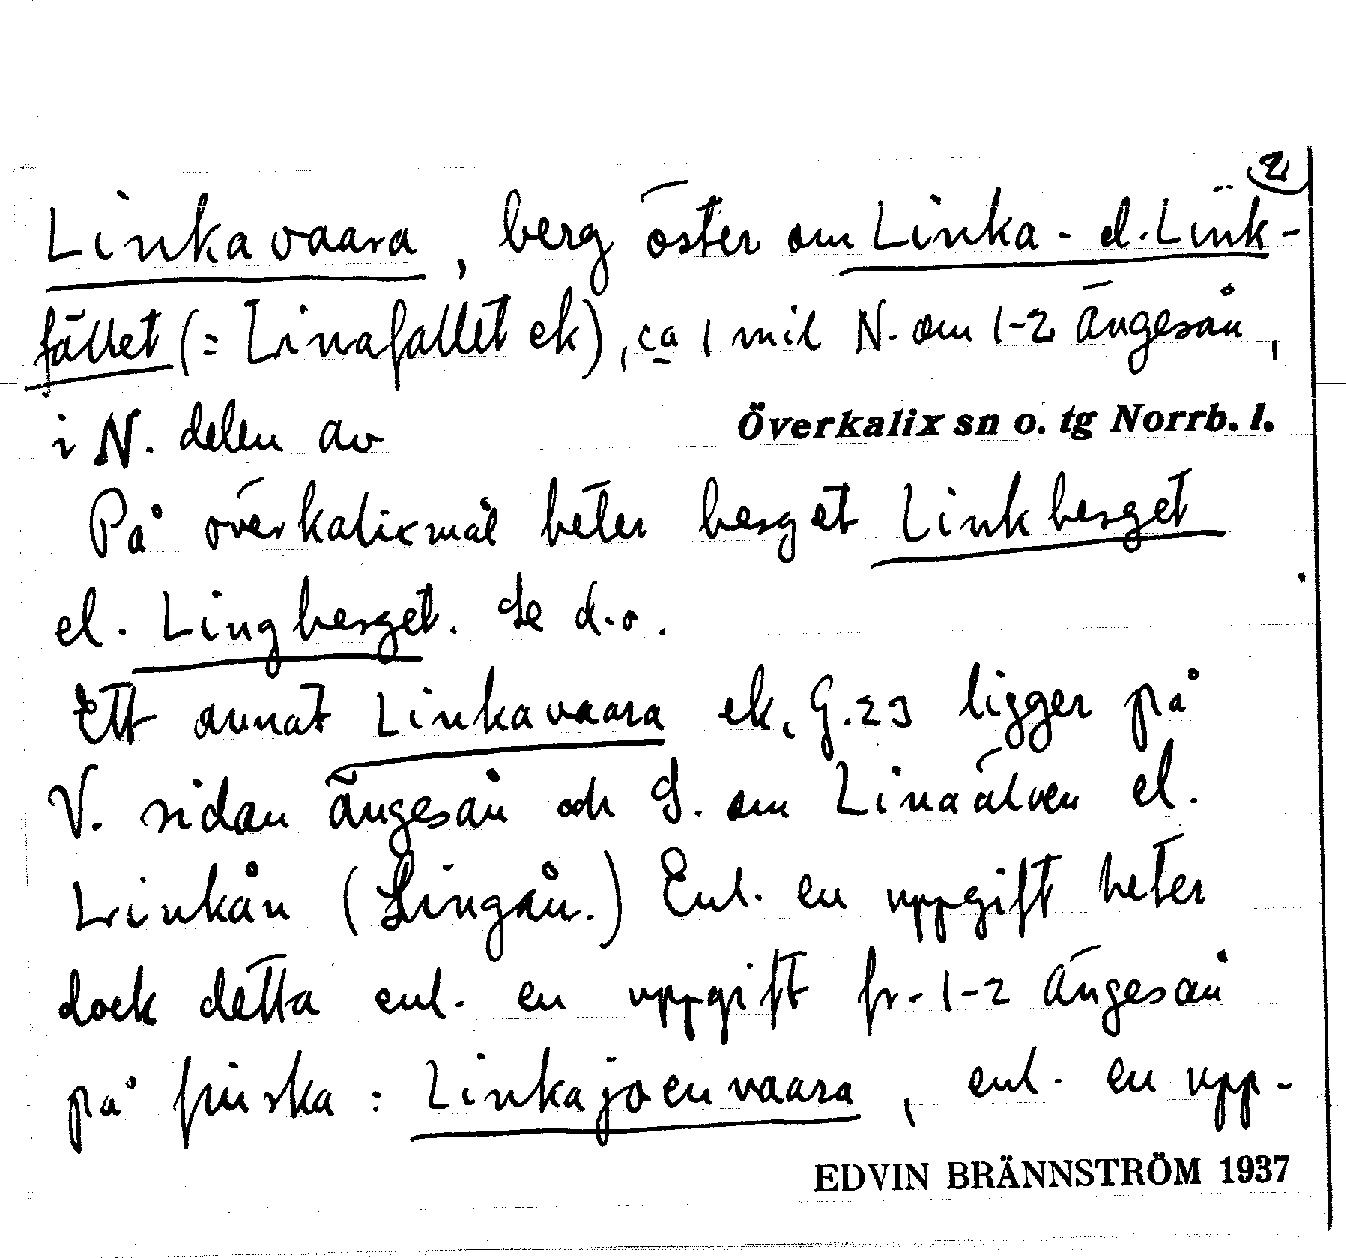 2
Linkavaara, berg öster om Linka- el. Link-
fället (= Linafallet ek), ca 1 mil N. om 1-2 Ängesån,
i N. delen av Överkalix sn o. tg Norrb. l.
På överkalixmål heter berget Linkberget
el. Lingberget. Se d.o.
Ett annat Linkavaara ek. G. 23 ligger på
V. sidan Ängesån och S. om Linaälven el.
Linkån (Lingån.) Enl. en uppgift heter
dock detta enl. en uppgift fr. 1-2 Ängesån
på finska: Linkajoenvaara, enl. en upp-
EDVIN BRÄNNSTRÖM 1937